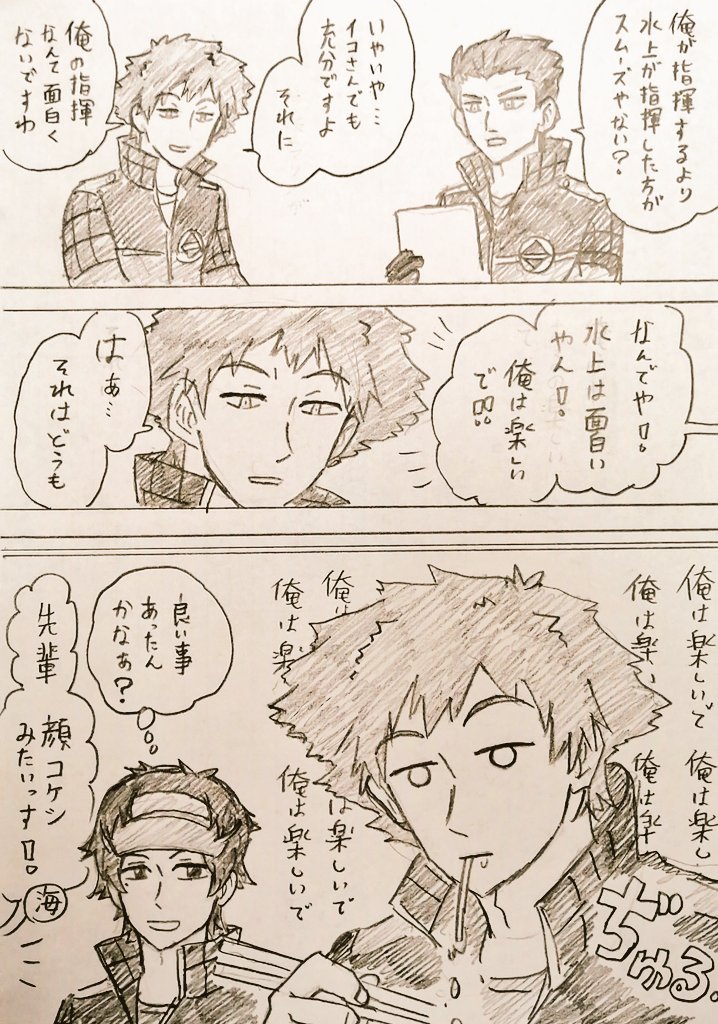 俺が指揮するより
水上が指揮した方が
スムーズやない?
いやいや…
イコさんでも
充分ですよ
それに
俺の指揮
なんて面白く
ないですわ
なんでや!!
水上は面白い
やん!!
俺は楽しい
で!!!
はぁ…
それはどうも
俺は楽しいで
俺は楽しい
俺は楽し
俺は
俺は
俺は楽
俺は楽しいで
は楽しいで
俺は楽しいで
ぢゅる。
良い事
あったん
かなぁ?
先輩
顔コケシ
みたいっす!!
海